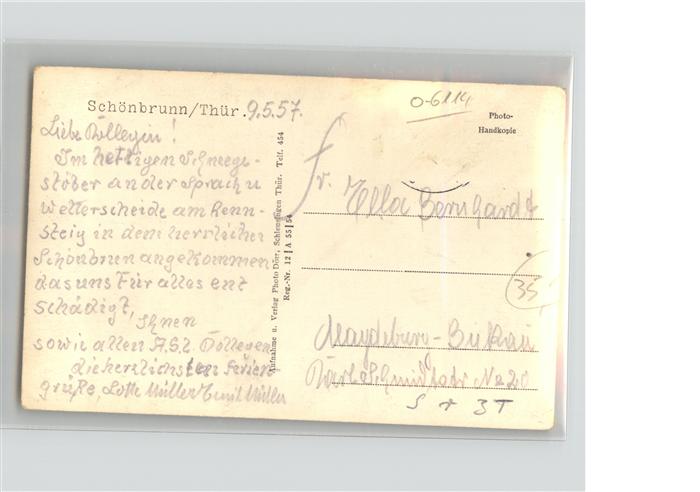 Schönbrunn/Thür. 9.5.57.
Liebe Kollegin!
Im heftigen Schneege-
stöber an der Sprach u
Wetterscheide am Renn-
steig in dem herrlichen
Schönbrun angekommen
das uns Für alles ent
schädigt,
Ihnen
sowie allen Kollegen
die herzlichsten Ferien
grüße, Lotte Müller Müller
Aufnahme u. Verlag Photo Dörr, Schleusingen Thür. Telf. 454
Reg.-Nr. 12 | A 55 | 54
0-6114
Photo-
Handkopie
Fr. Ella Bernhardt
35
Magdeburg-Bukau
No 20
S + 3T